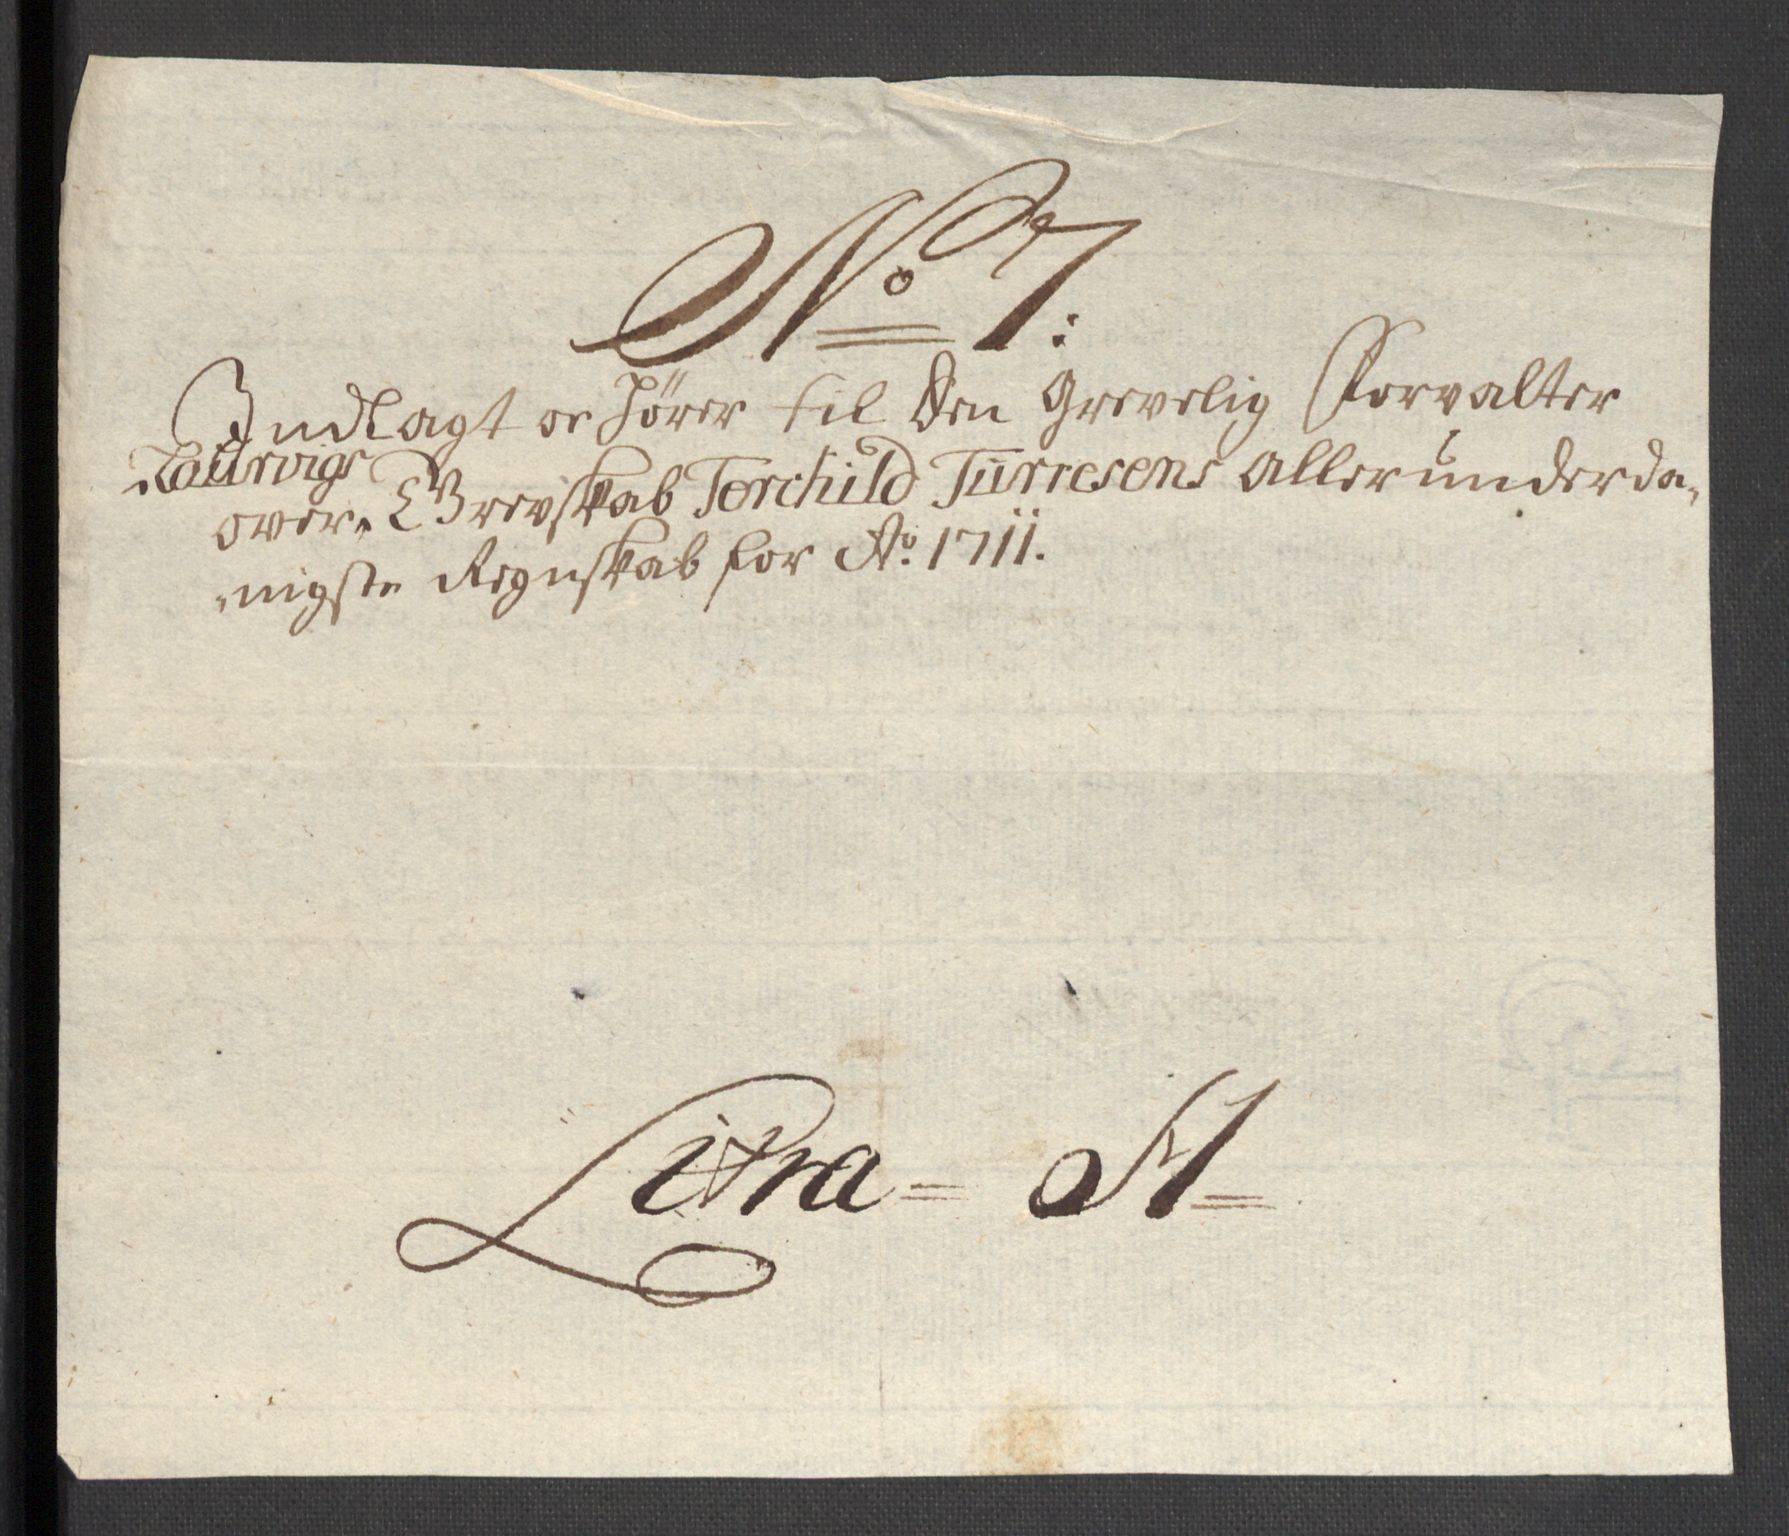 No 7:
Indlagt oc hører til Den Grevelig Forvalter
Laurvigs
over Grevskab Torchild Turresens Allerunderda„
„nigste Regnskab for Ao. 1711.
Litra = A =